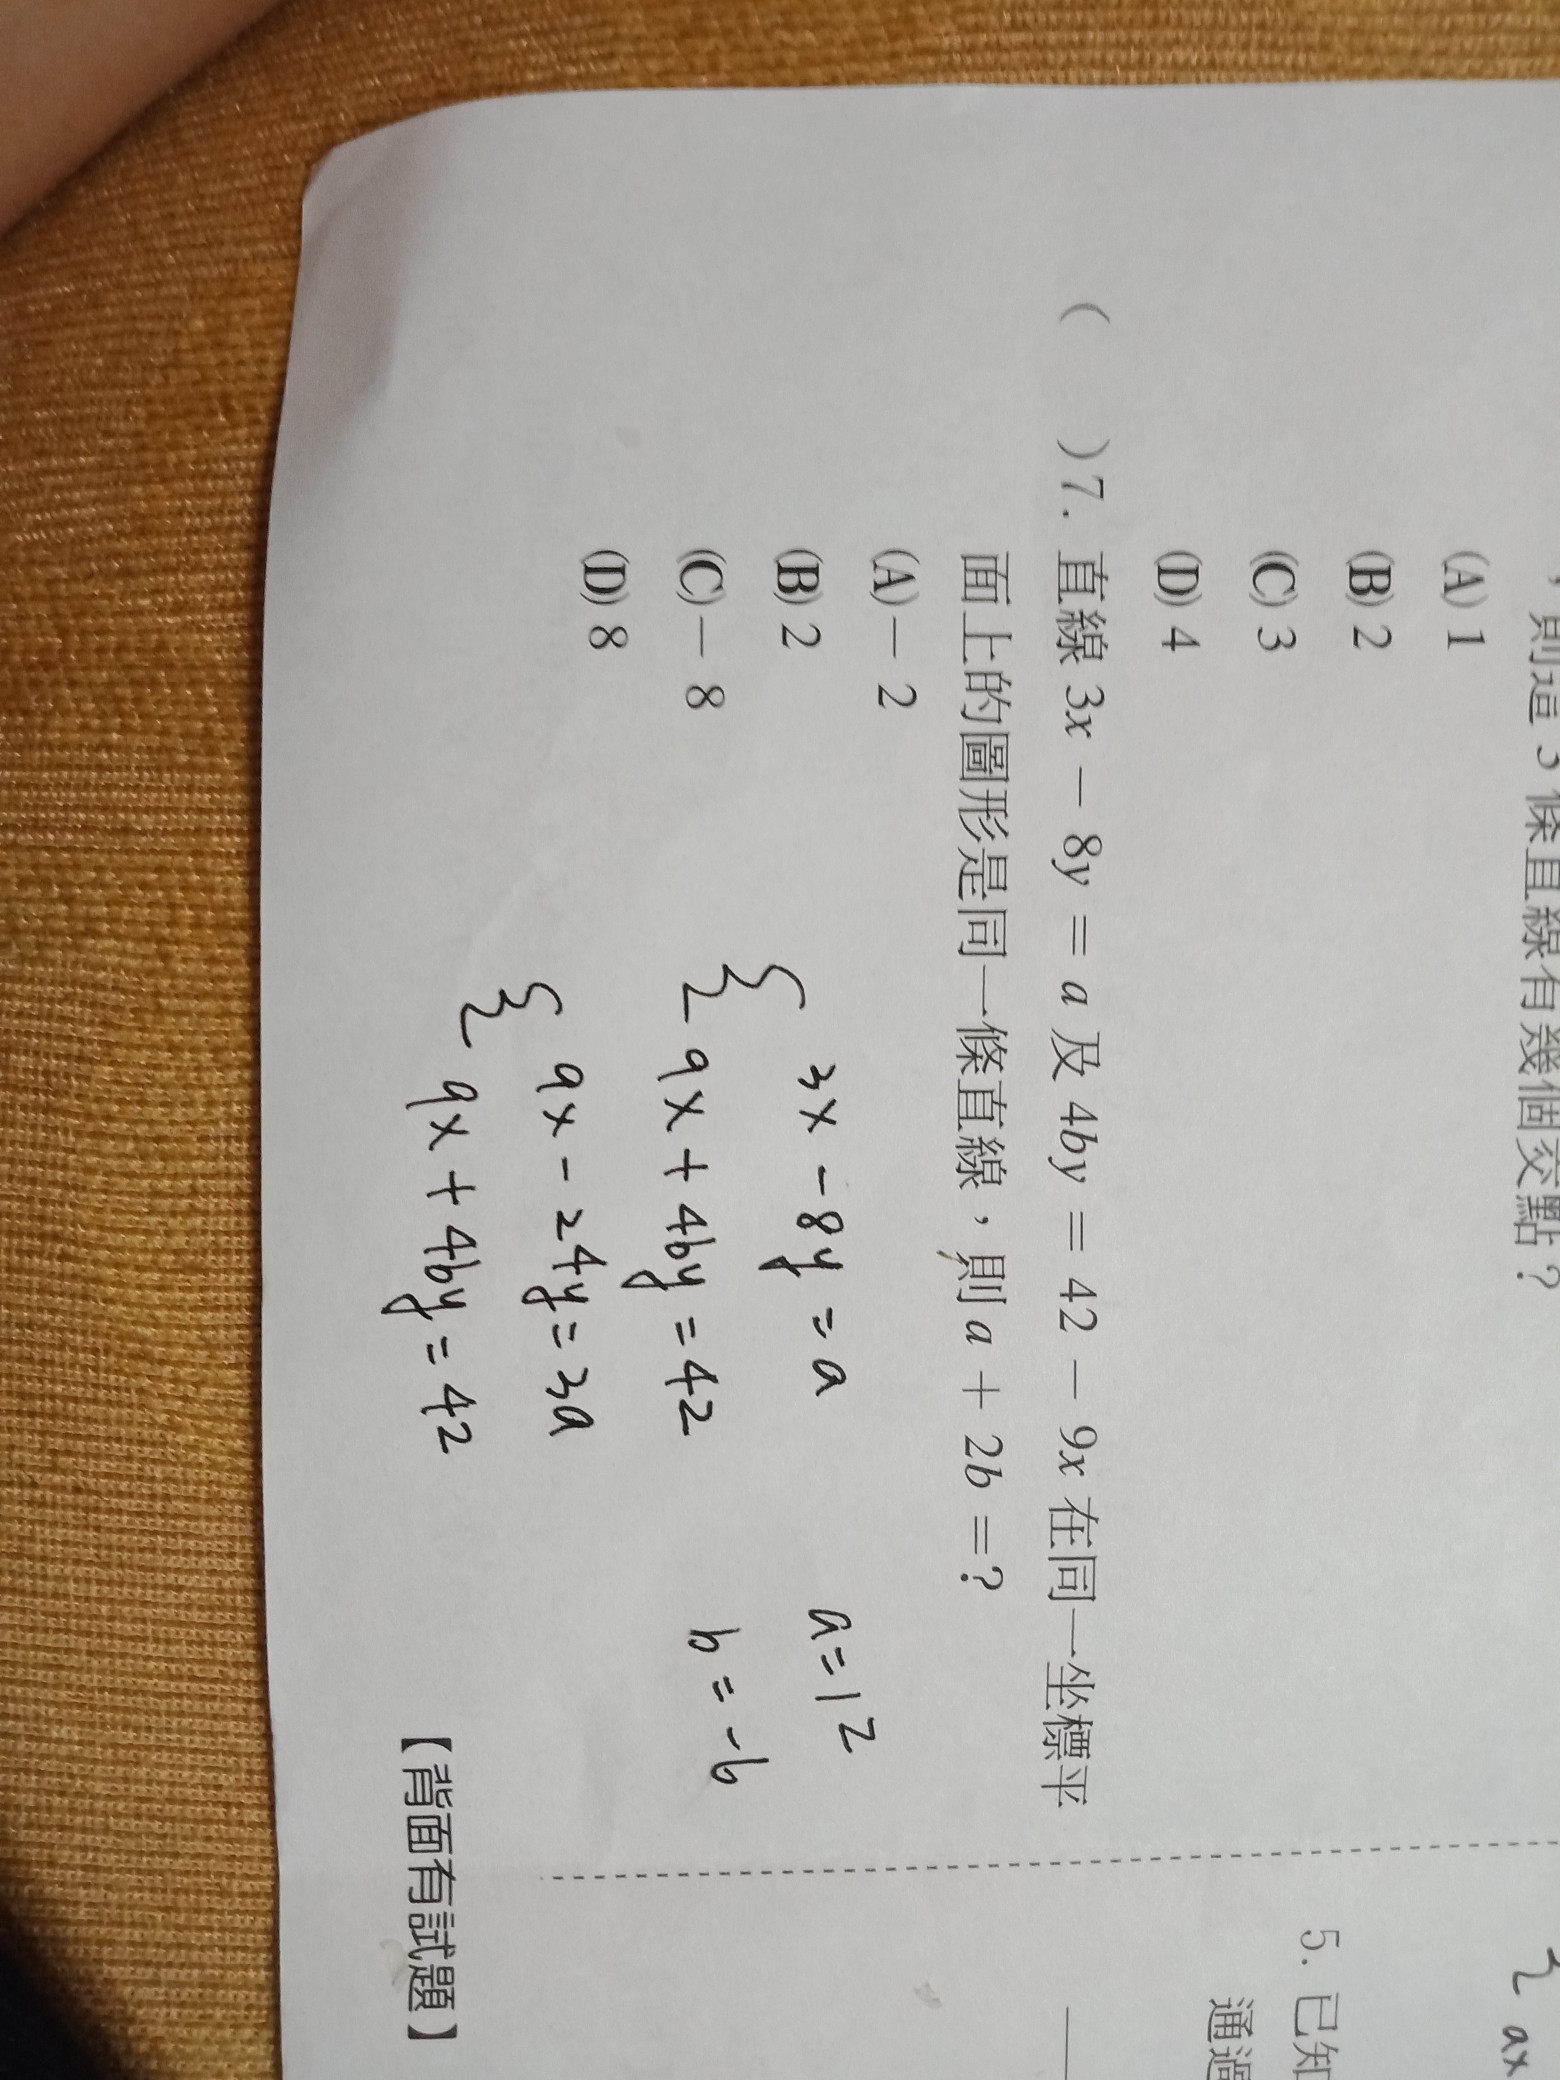 ，則這3條直線有幾個交點？
(A) 1
(B) 2
(C) 3
(D) 4
( )7. 直線 3x－8y＝a 及 4by＝42－9x 在同一坐標平
面上的圖形是同一條直線，則 a＋2b＝?
(A)－2
(B) 2
(C)－8
(D) 8
{ 3x - 8y = a
9x + 4by = 42
{ 9x - 24y = 3a
9x + 4by = 42
a = 12
b = -6
【背面有試題】
{ ax
5. 已知
通過